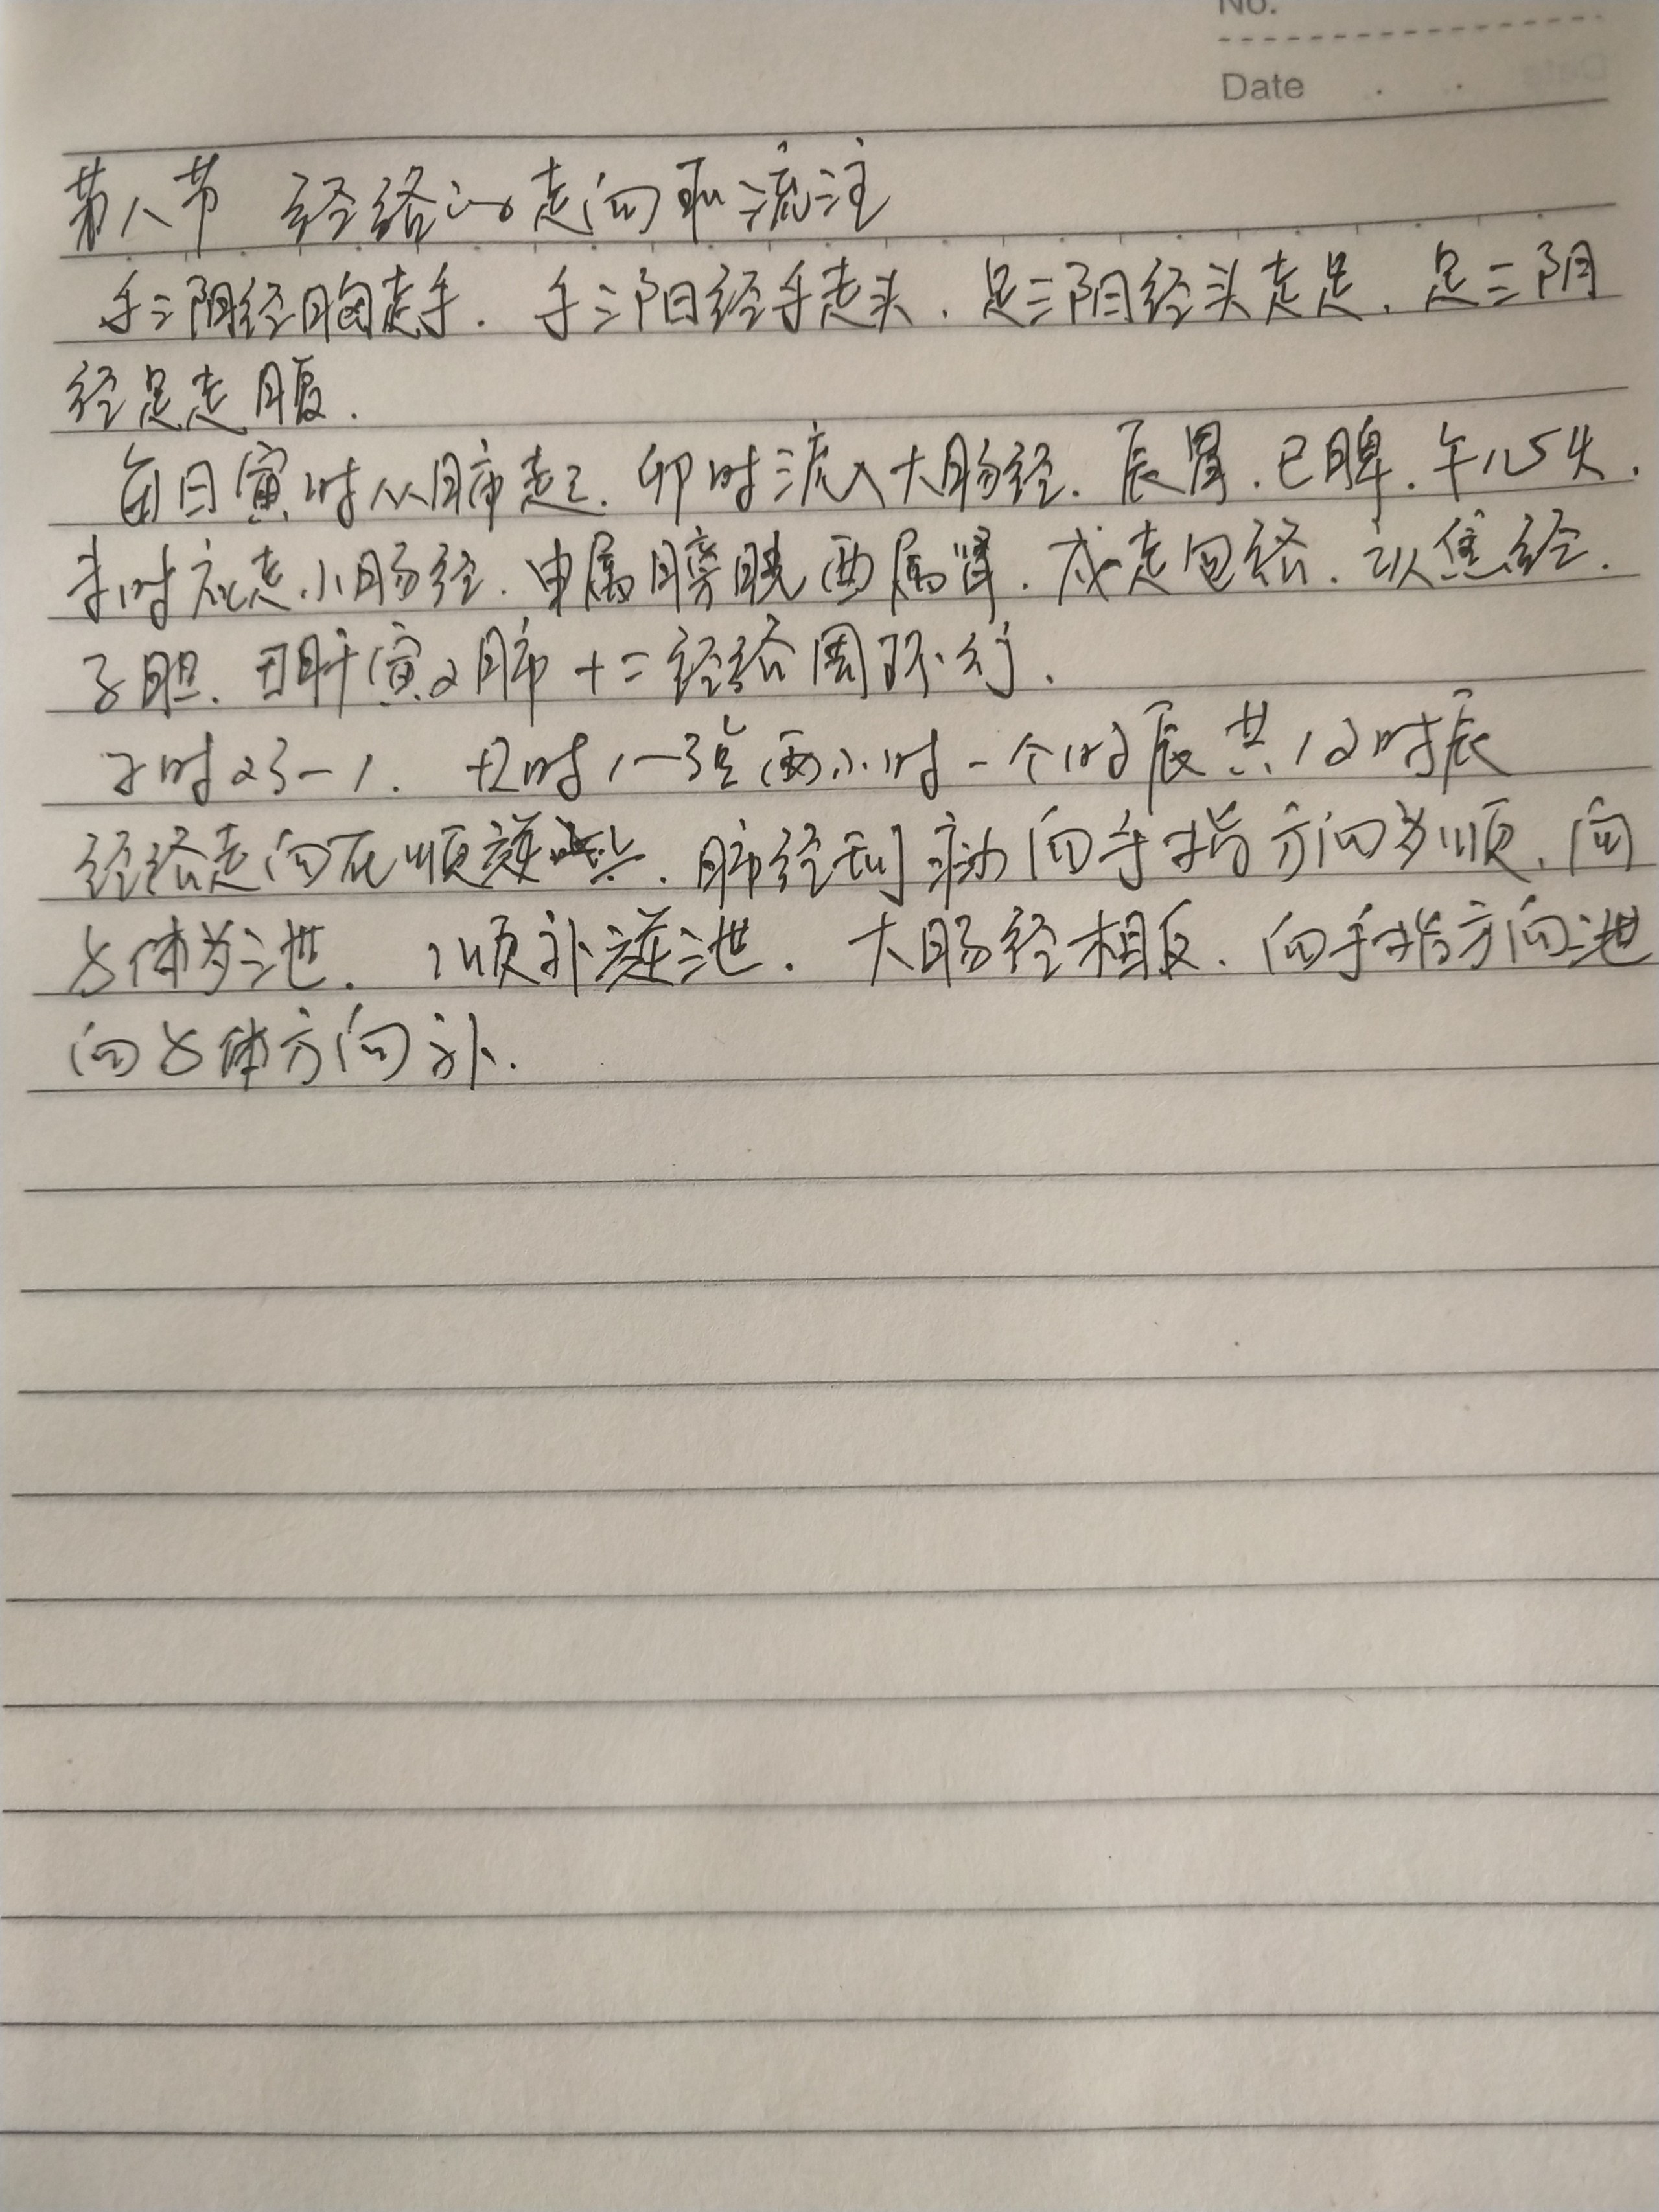 No.
Date
第八节 经络的走向和流注
手三阴经胸走手. 手三阳经手走头. 足三阴经头走足. 足三阴
经足走腹.
每日寅时从肺起. 卯时流入大肠经. 辰胃. 巳脾. 午心火.
未时应走小肠经. 申属膀胱酉属肾. 戌走包络. 亥焦经.
子胆. 丑肝寅又肺十二经络周环行.
子时23-1. 丑时1-3点两小时一个时辰共12时辰
经络走向在顺逆. 肺经到 向手指方向为顺. 向
身体为泄. 顺补逆泄. 大肠经相反. 向手指方向泄
向身体方向补.